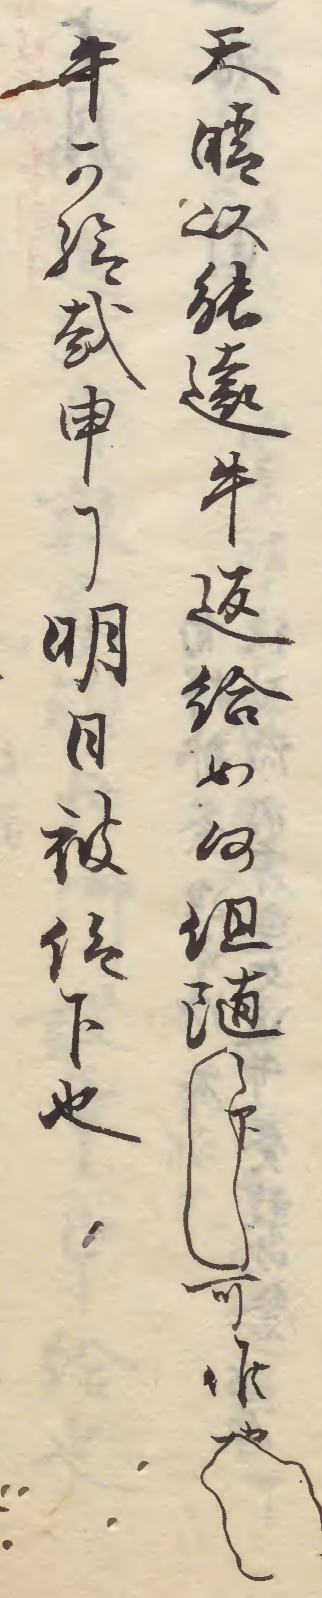 天晴以能遠牛返給如何但随下可作也
牛可給哉申了明日被仰下也